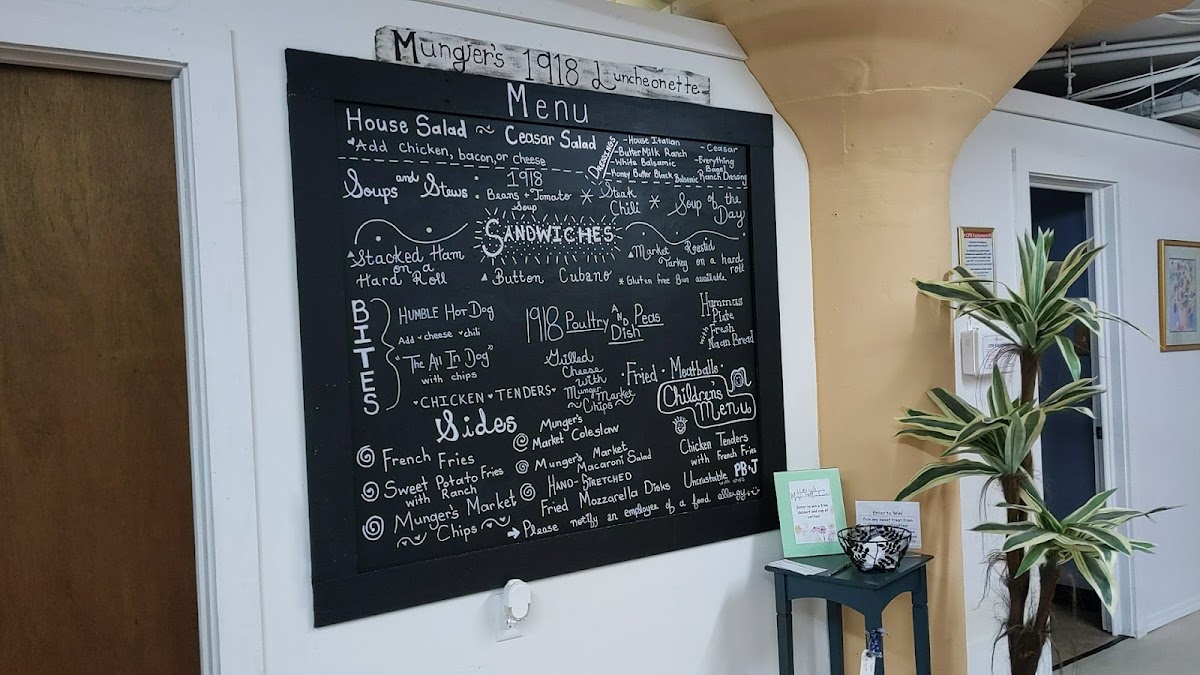 Munger's 1918 Luncheonette
Menu
House Salad ~ Ceasar Salad
Add Chicken, bacon, or cheese
Dressings
-House Italian
-ButterMilk Ranch
-White Balsamic
-Honey Butter Black Balsamic
-Ceasar
-Everything
Bagel
Ranch Dressing
Soups and Stews :
1918
Beans + Tomato
Soup
* Steak
Chili *
Soup of the
Day
Sandwiches
Stacked Ham
on a
Hard Roll
Button Cubano
Market Roasted
Turkey on a hard
roll
* Gluten free Bun available
BITES
Humble Hot Dog
Add • cheese • chili
"The All In Dog"
with chips
• CHICKEN • TENDERS •
1918 Poultry AND Peas
Dish
Grilled
Cheese
with
Munger Market
~ Chips ~
Hummus
Plate
with Fresh
Naan Bread
• Fried • Meatballs •
Sides
French Fries
Sweet Potato Fries
with Ranch
Munger's Market
Chips
Munger's
Market Coleslaw
Munger's Market
Macaroni Salad
HAND-STRETCHED
Fried Mozzarella Disks
Children's
Menu
Chicken Tenders
with French Fries
Uncrustable PB+J
with chips
→ Please notify an employee of a food allergy
Enter to win a free
dessert and cup of
coffee!
Enter to Win!